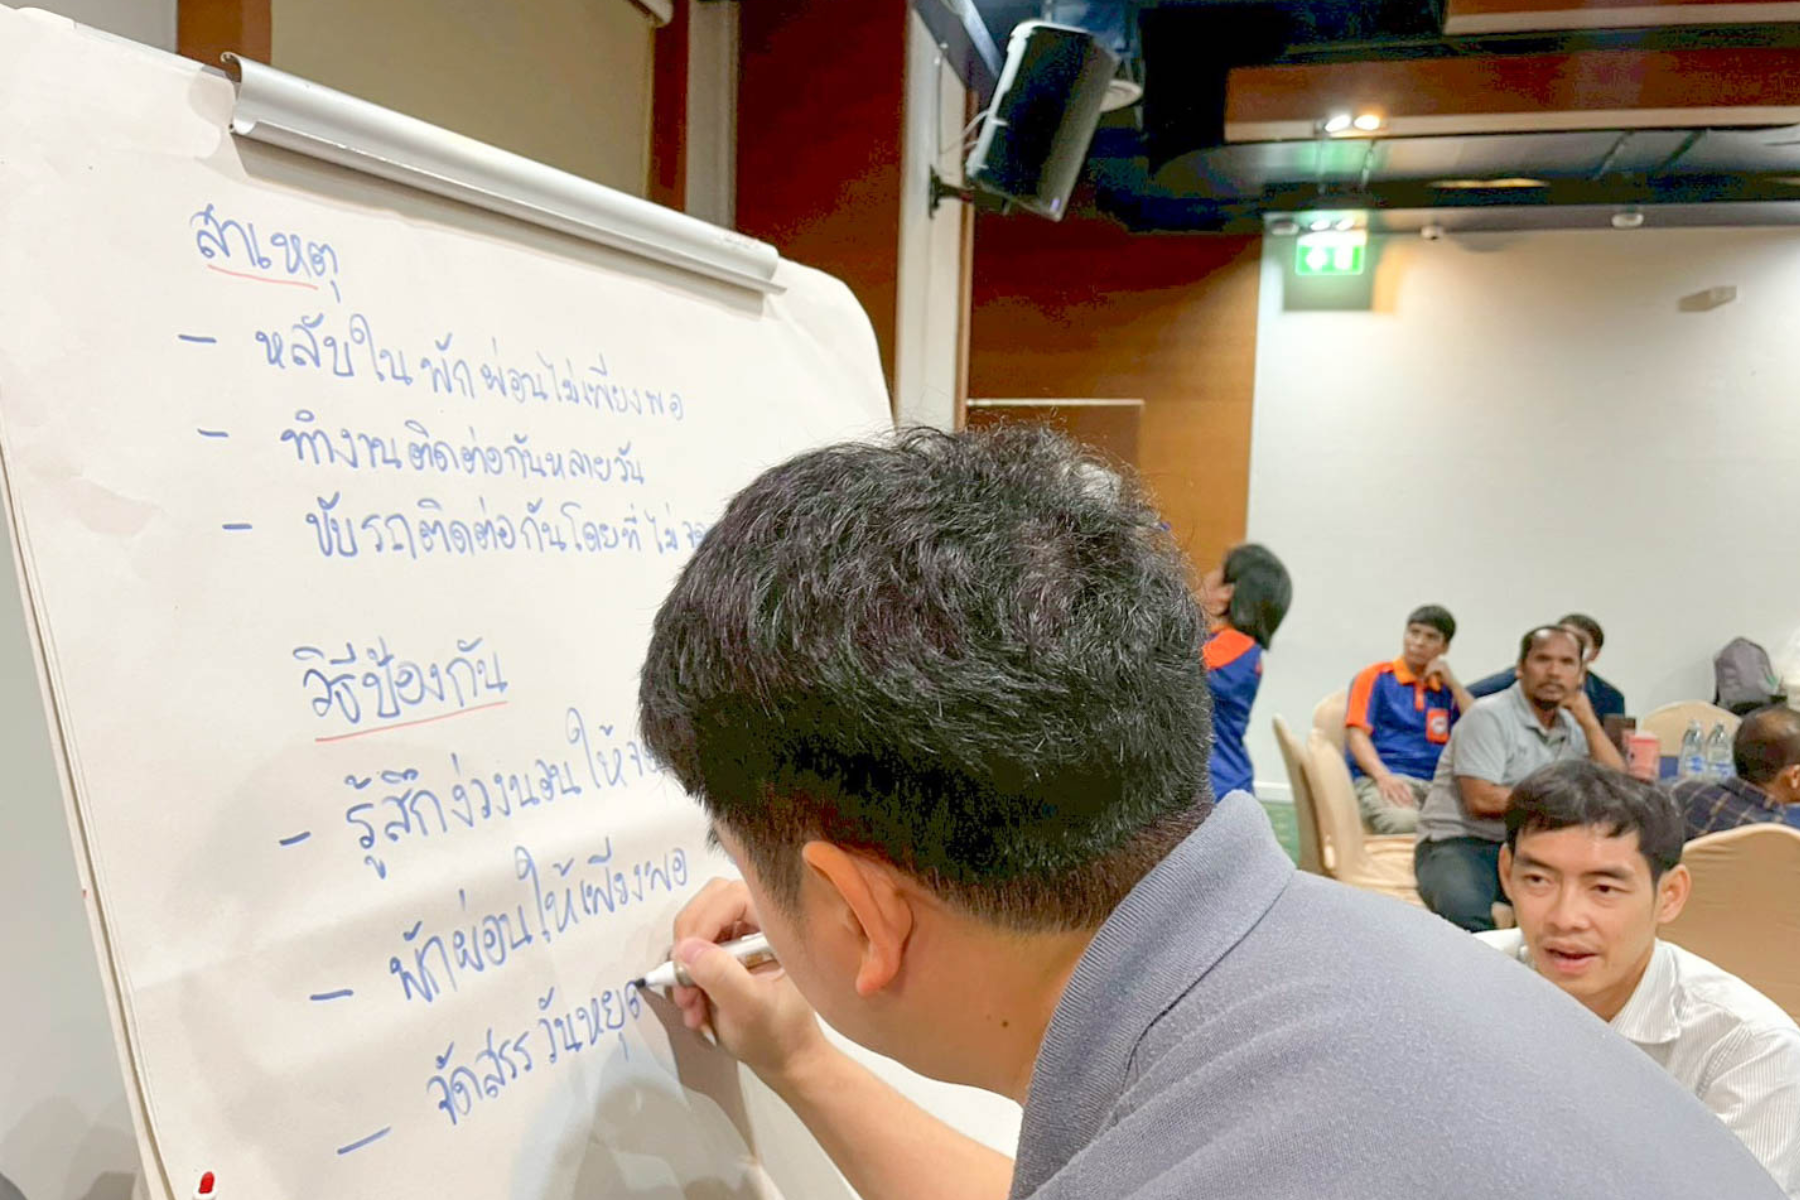 สาเหตุ
- หลับใน พักผ่อนไม่เพียงพอ
- ทำงานติดต่อกันหลายวัน
- ขับรถติดต่อกันโดยที่ ไม่
วิธีป้องกัน
- รู้สึกง่วงนอน ให้
- พักผ่อนให้เพียงพอ
- จัดสรร วันหยุด